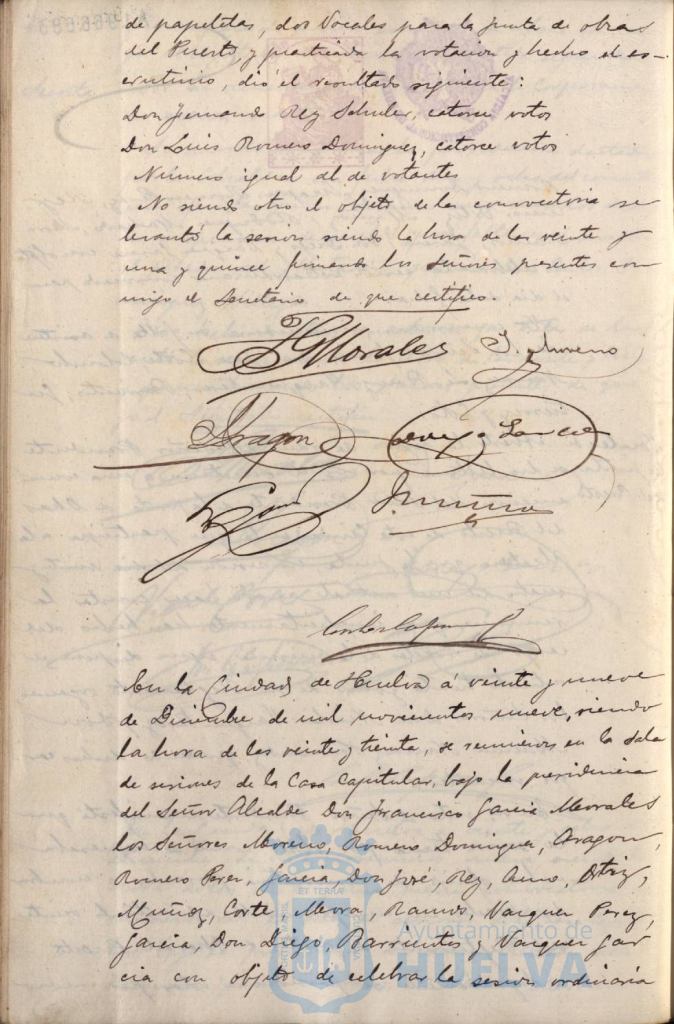 de papeletas, dos Vocales para la Junta de obras
del Puerto, y practicada la votacion y hecho el es-
crutinio, dió el resultado siguiente:
Don Fernando Rey Schuler, catorce votos
Don Luis Romero Dominguez, catorce votos
Número igual al de votantes
No siendo otro el objeto de la convocatoria se
levantó la sesion siendo la hora de las veinte y
una y quince firmando los Señores presentes con-
migo el Secretario de que certifico.
FGMorales J. Moreno
Aragon Diego Garcia
J. Muñoz
En la Ciudad de Huelva á veinte y nueve
de Diciembre de mil novecientos nueve, siendo
la hora de las veinte y treinta, se reunieron en la Sala
de sesiones de la Casa Capitular, bajo la presidencia
del Señor Alcalde Don Francisco Garcia Morales
los Señores Moreno, Romero Dominguez, Aragon,
Romero Perez, Garcia, Don José, Rey, Amo, Ortiz,
Muñoz, Corte, Mora, Ramos, Vazquez Perez,
Garcia, Don Diego, Barrientos y Vazquez Gar
cia con objeto de celebrar la sesion ordinaria
ET TERRÆ
Ayuntamiento de
HUELVA